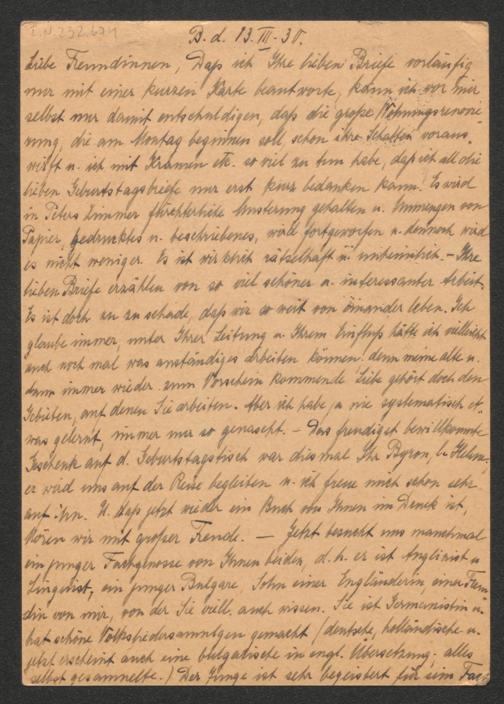 I.N. 232.674
B. d. 13. III. 30.
Liebe Freundinnen, Daß ich Ihre lieben Briefe vorläufig
nur mit einer kurzen Karte beantworte, kann ich vor mir
selbst nur damit entschuldigen, daß die große Wohnungsrenovie-
rung, die am Montag beginnen soll, schon ihre Schatten voraus
wirft u. ich mit Kramen etc. so viel zu tun habe, daß ich all die
lieben Geburtstagsbriefe nur erst kurz bedanken kann. Es wird
in Peters Zimmer fürchterliche Musterung gehalten u. Unmengen von
Papier, gedrucktes u. beschriebenes, wird fortgeworfen u. dennoch wird
es nicht weniger. Es ist wirklich rätselhaft u. unheimlich. – Ihre
lieben Briefe erzählen von so viel schöner u. interessanter Arbeit.
Es ist doch zu zu schade, daß wir so weit von einander leben. Ich
glaube immer, unter Ihrer Leitung u. Ihrem Einfluß hätte ich vielleicht
auch noch mal was anständiges arbeiten können. denn meine alte u.
dann immer wieder zum Vorschein kommende Liebe gehört doch den
Gebieten, auf denen Sie arbeiten. Aber ich habe ja nie systematisch et-
was gelernt, immer nur so genascht. – Das freudigst bewillkommte
Geschenk auf d. Geburtstagstisch war diesmal Ihr Byron, l. Helene,
er wird uns auf der Reise begleiten u. ich freue mich schon sehr
auf ihn. U. daß jetzt wieder ein Buch von Ihnen im Druck ist,
hören wir mit großer Freude. — Jetzt besucht uns manchmal
ein junger Fachgenosse von Ihnen beiden, d. h. er ist Anglicist u.
Linguist, ein junger Bulgare, Sohn einer Engländerin, einer Freun-
din von mir, von der Sie viell. auch wissen. Sie ist Germanistin u.
hat schöne Volksliedersammlgen gemacht (deutsche, holländische u.
jetzt erscheint auch eine bulgarische in engl. Übersetzung. alles
selbst gesammelte.) Der Junge ist sehr begeistert für sein Fach